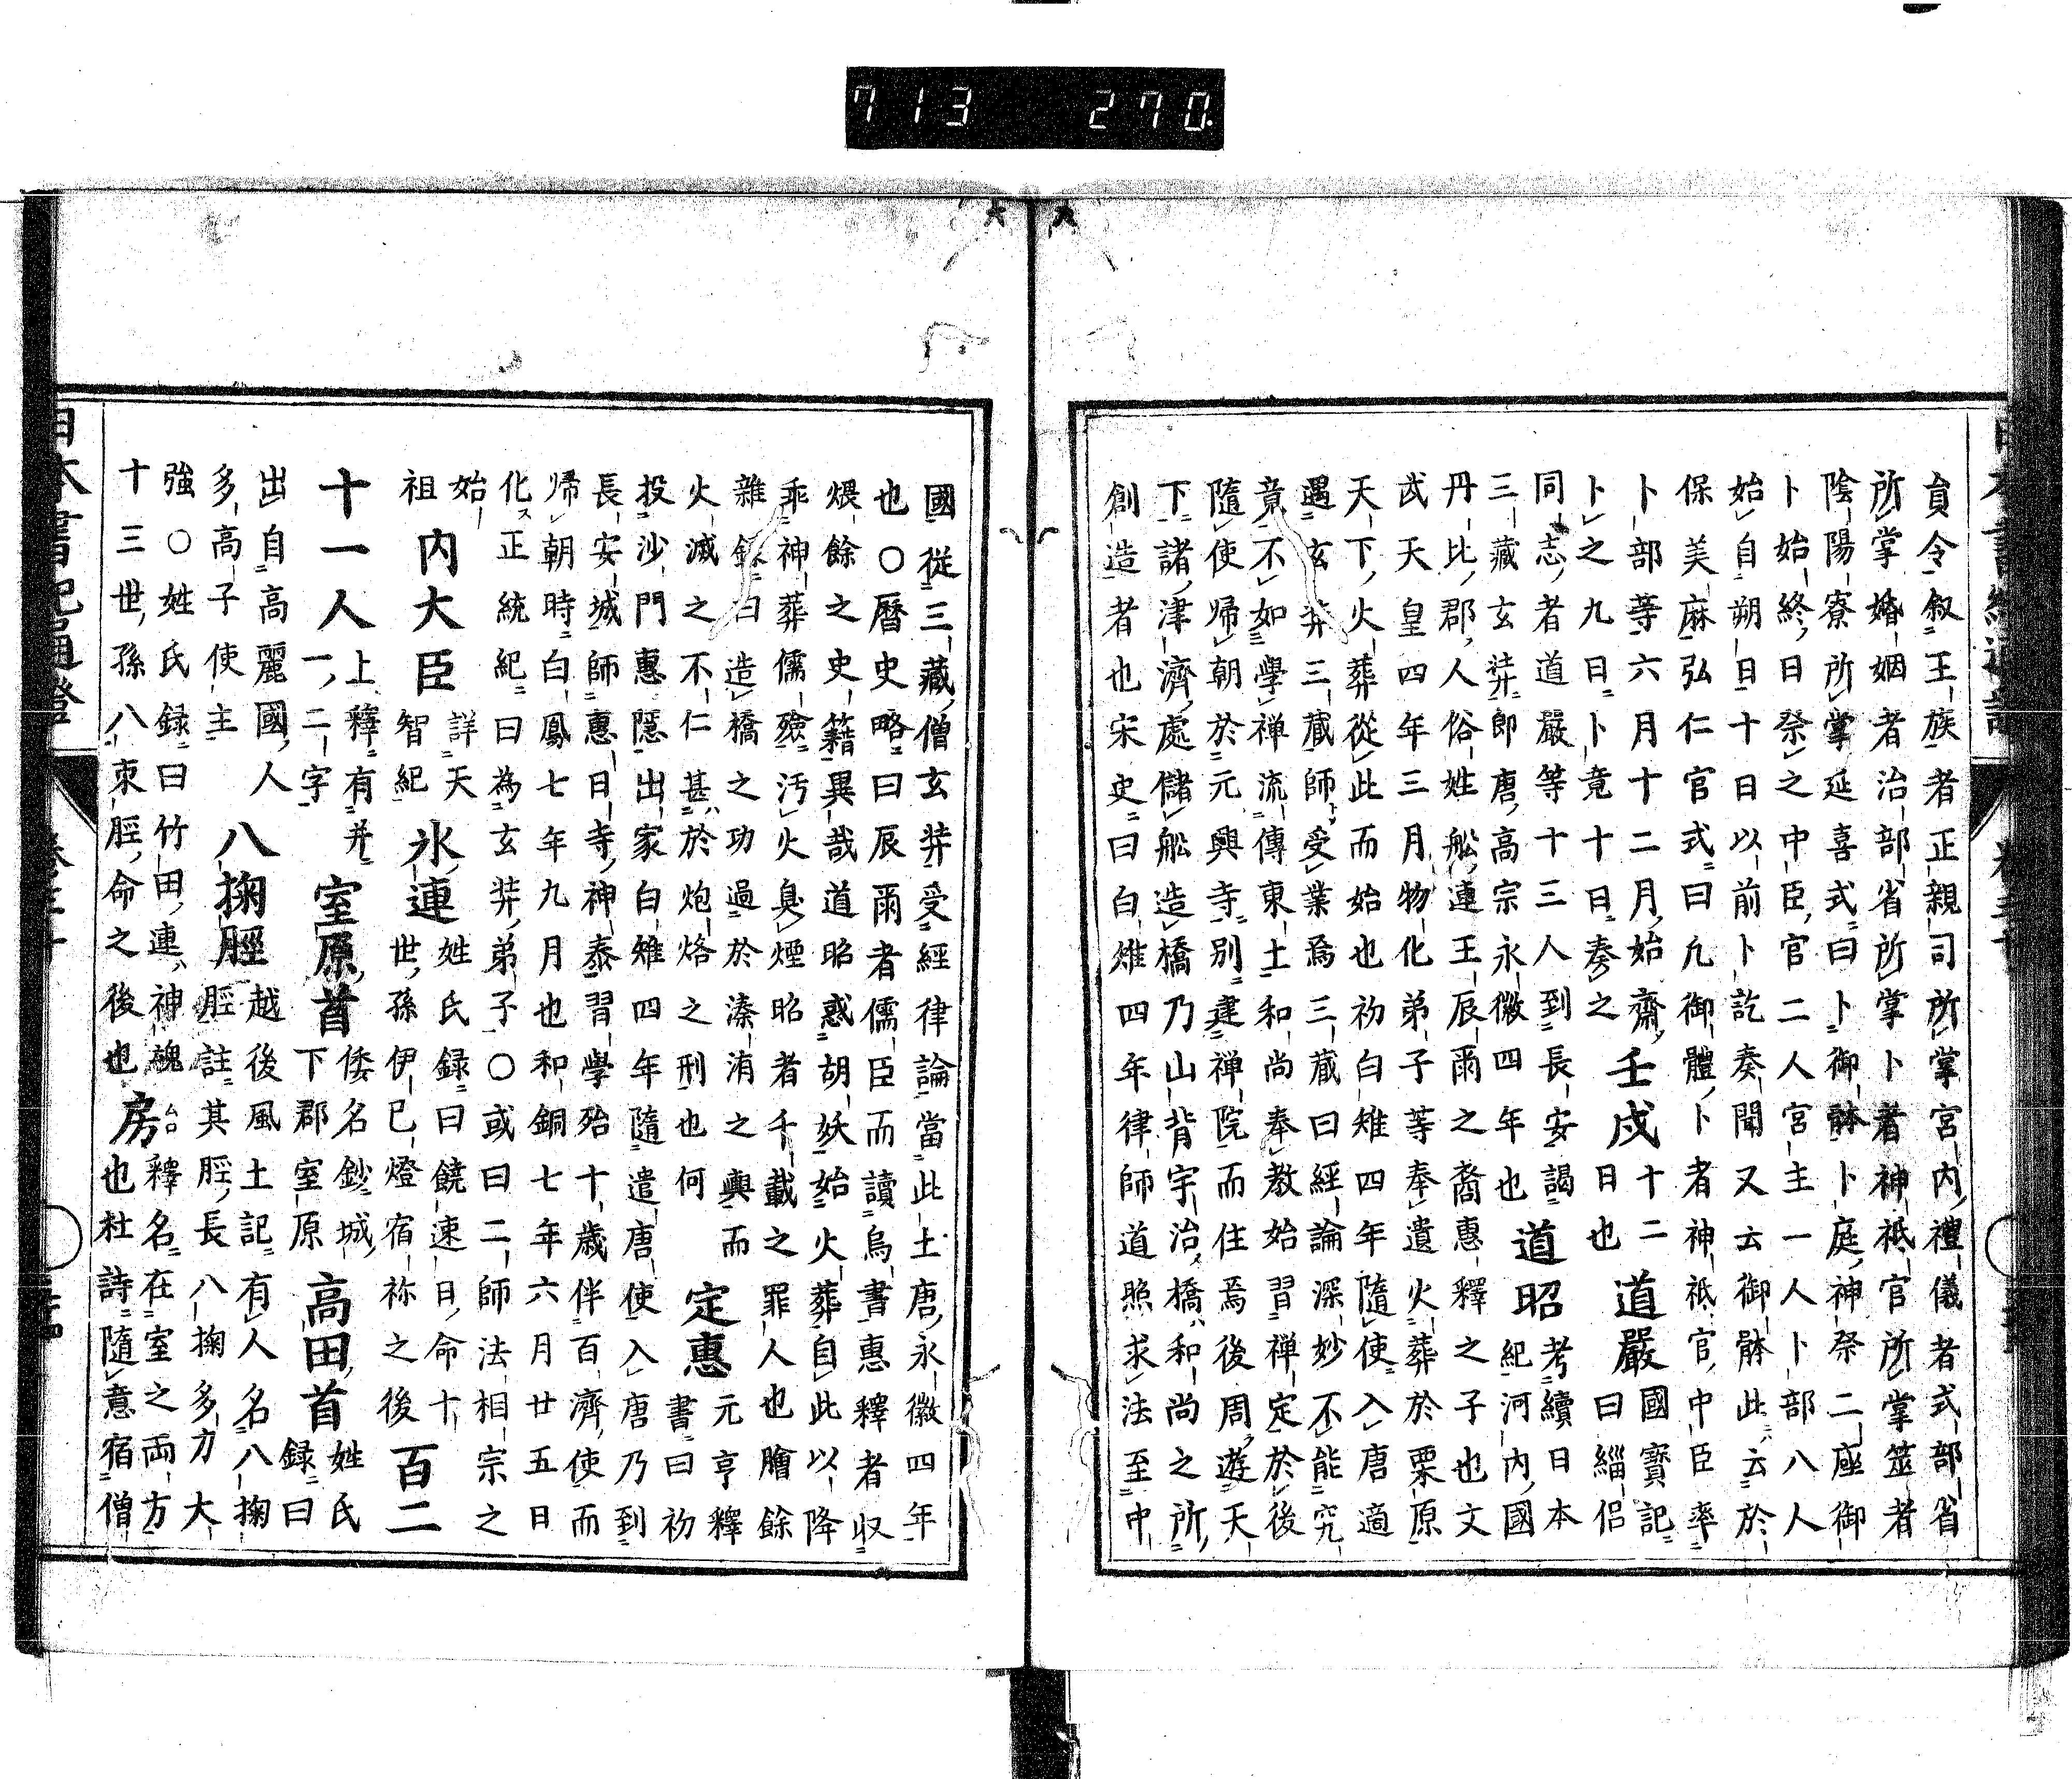 713 270
貟令叙王族者正親司所掌宮内禮儀者式部省
所掌婚姻者治部省所掌卜者神祇官所掌筮者
陰陽寮所掌延喜式曰卜御躰卜庭神祭二座御
卜始終日祭之中臣官二人宮主一人卜部八人
始自朔日十日以前卜訖奏聞又云御躰此云於
保美麻弘仁官式曰凡御體卜者神祇官中臣率
卜部等六月十二月始齋
卜之九日卜竟十日奏之
壬戌
十二
日也
道嚴
國寶記
曰緇侶
同志者道嚴等十三人到長安謁
三藏玄弉郎唐高宗永徽四年也
道昭
考續日本
紀河内國
丹比郡人俗姓船連王辰爾之裔惠釋之子也文
武天皇四年三月物化弟子等奉遺火葬於栗原
天下火葬從此而始也初白雉四年隨使入唐適
遇玄弉三藏師受業焉三藏曰經論深妙不能究
竟不如學禅流傳東土和尚奉教始習禅定於後
隨使帰朝於元興寺別建禅院而住焉後周遊天
下諸津濟處儲船造橋乃山背宇治橋和尚之所
創造者也宋史曰白雉四年律師道照求法至中
國從三藏僧玄弉受經律論當此土唐永徽四年
也○曆史略曰辰爾者儒臣而讀烏書惠釋者収
煨餘之史籍異哉道昭惑胡妖始火葬自此以降
乖神葬儒殮汚火臭煙昭者千載之罪人也膾餘
雜錄曰造橋之功過於溱洧之輿而
火滅之不仁甚於炮烙之刑也何
定惠
元亨釋
書曰初
投沙門惠隱出家白雉四年隨遣唐使入唐乃到
長安城師惠日寺神泰習學殆十歳伴百濟使而
帰朝時白鳳七年九月也和銅七年六月廿五日
化正統紀曰為玄弉弟子○或曰二師法相宗之
始
祖
内大臣
詳天
智紀
氷連
姓氏録曰饒速日命十
世孫伊己燈宿祢之後
百二
十一人
上釋有并
一二字
室原首
倭名鈔城
下郡室原
高田首
姓氏
録曰
出自高麗國人
多高子使主
八掬脛
越後風土記有人名八掬
脛註其脛長八掬多力大
強○姓氏録曰竹田連神魂
十三世孫八束脛命之後也
房
釋名在室之両方
也杜詩隨意宿僧